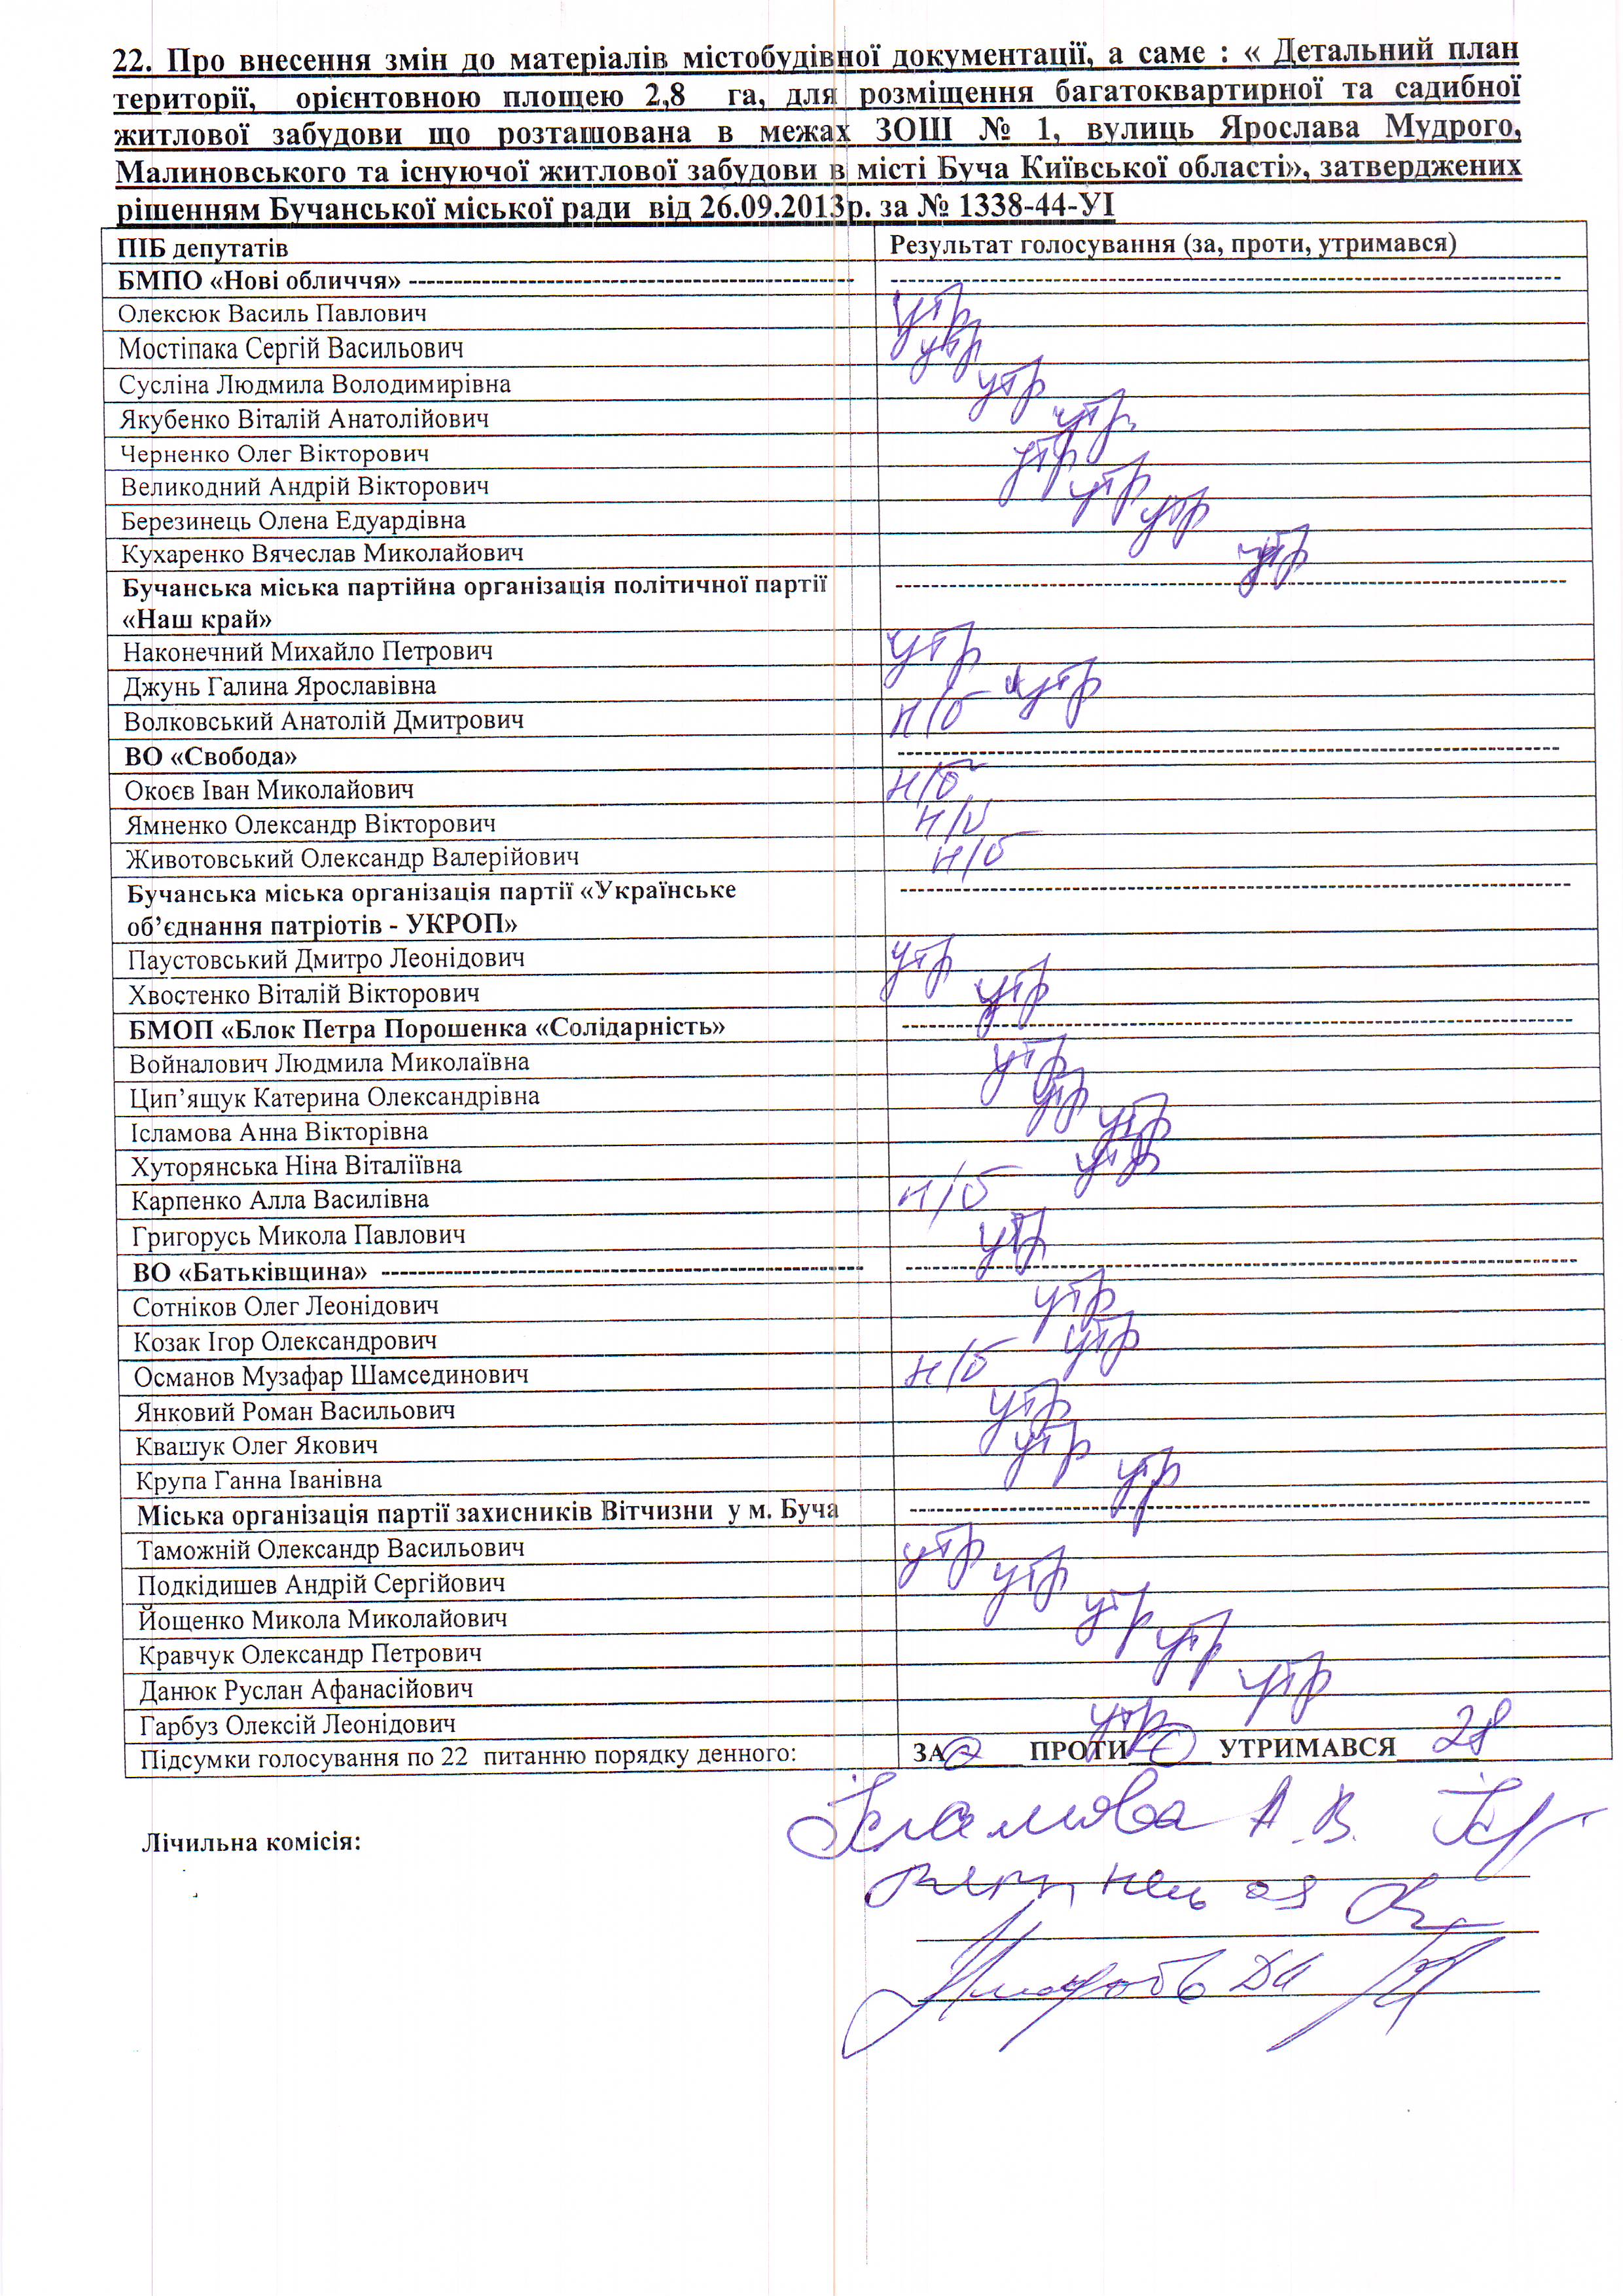 22. Про внесення змін до матеріалів містобудівної документації, а саме : « Детальний план
території, орієнтовною площею 2,8 га, для розміщення багатоквартирної та садибної
житлової забудови що розташована в межах ЗОШ № 1, вулиць Ярослава Мудрого,
Малиновського та існуючої житлової забудови в місті Буча Київської області», затверджених
рішенням Бучанської міської ради від 26.09.2013р. за № 1338-44-УІ
ПІБ депутатів Результат голосування (за, проти, утримався)
БМПО «Нові обличчя» ---
Олексюк Василь Павлович утр
Мостіпака Сергій Васильович утр
Сусліна Людмила Володимирівна утр
Якубенко Віталій Анатолійович утр
Черненко Олег Вікторович утр
Великодний Андрій Вікторович утр
Березинець Олена Едуардівна утр
Кухаренко Вячеслав Миколайович утр
Бучанська міська партійна організація політичної партії
«Наш край»
Наконечний Михайло Петрович утр
Джунь Галина Ярославівна утр
Волковський Анатолій Дмитрович н/б
ВО «Свобода»
Окоєв Іван Миколайович н/б
Ямненко Олександр Вікторович н/б
Животовський Олександр Валерійович н/б
Бучанська міська організація партії «Українське
об’єднання патріотів - УКРОП»
Паустовський Дмитро Леонідович утр
Хвостенко Віталій Вікторович утр
БМОП «Блок Петра Порошенка «Солідарність»
Войналович Людмила Миколаївна утр
Цип’ящук Катерина Олександрівна утр
Ісламова Анна Вікторівна утр
Хуторянська Ніна Віталіївна утр
Карпенко Алла Василівна н/б
Григорусь Микола Павлович утр
ВО «Батьківщина» ---
Сотніков Олег Леонідович утр
Козак Ігор Олександрович утр
Османов Музафар Шамсединович н/б
Янковий Роман Васильович утр
Квашук Олег Якович утр
Крупа Ганна Іванівна утр
Міська організація партії захисників Вітчизни у м. Буча
Таможній Олександр Васильович утр
Подкідишев Андрій Сергійович утр
Йощенко Микола Миколайович утр
Кравчук Олександр Петрович утр
Данюк Руслан Афанасійович утр
Гарбуз Олексій Леонідович утр
Підсумки голосування по 22 питанню порядку денного: ЗА 0 ПРОТИ 0 УТРИМАВСЯ 28
Ісламова А.В.
Лічильна комісія: